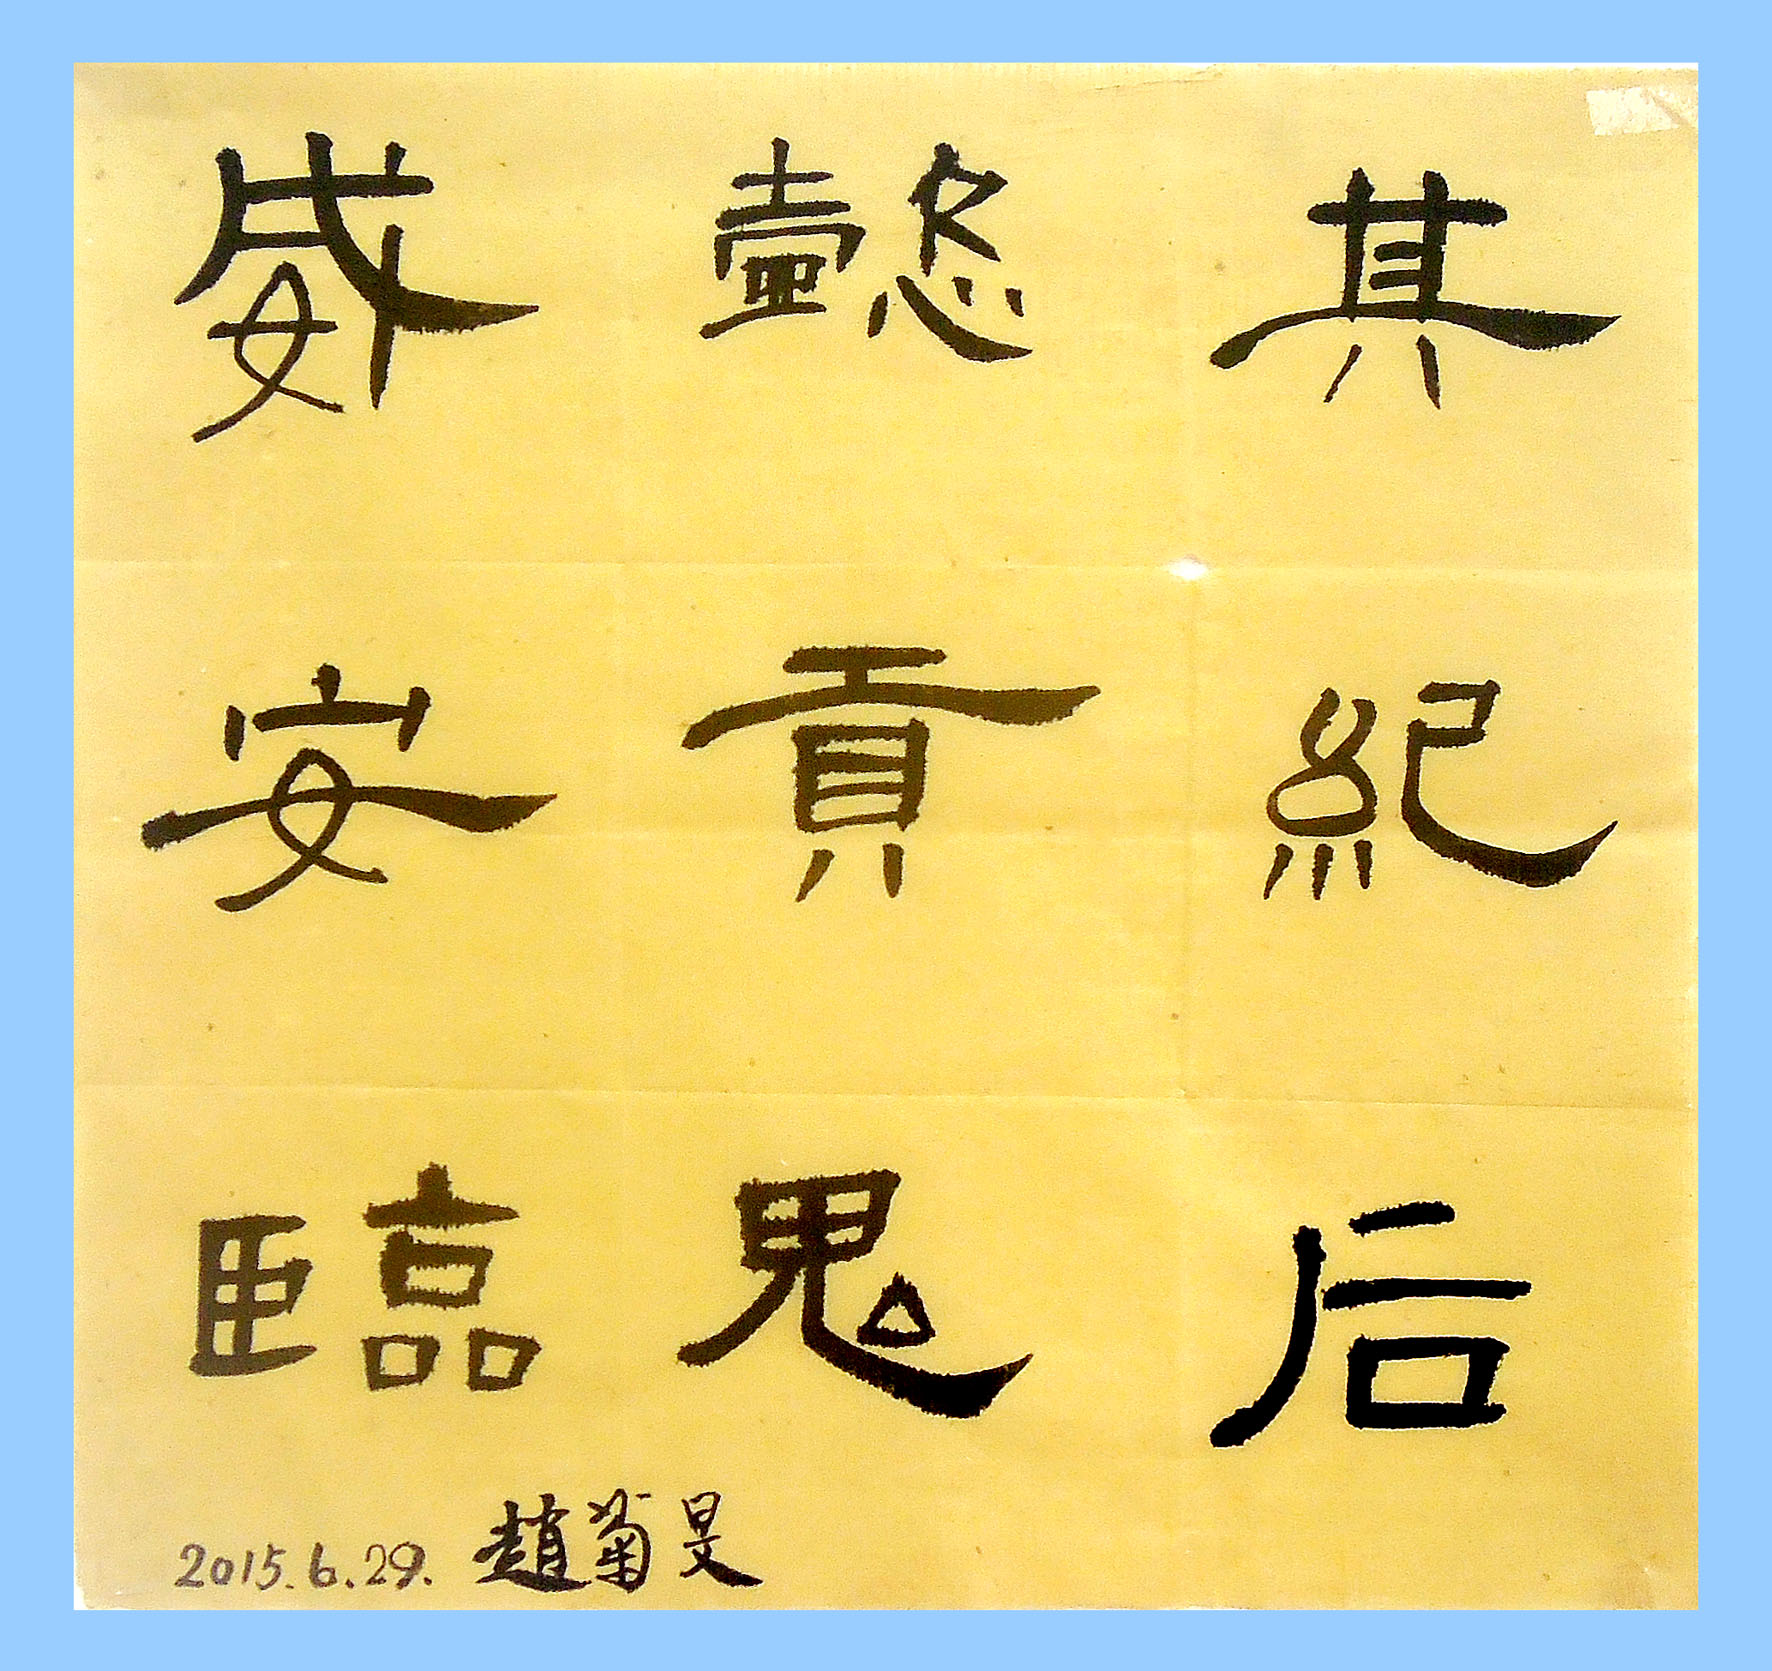 其紀后
懿貢鬼
威安臨
2015.6.29. 趙菊旻